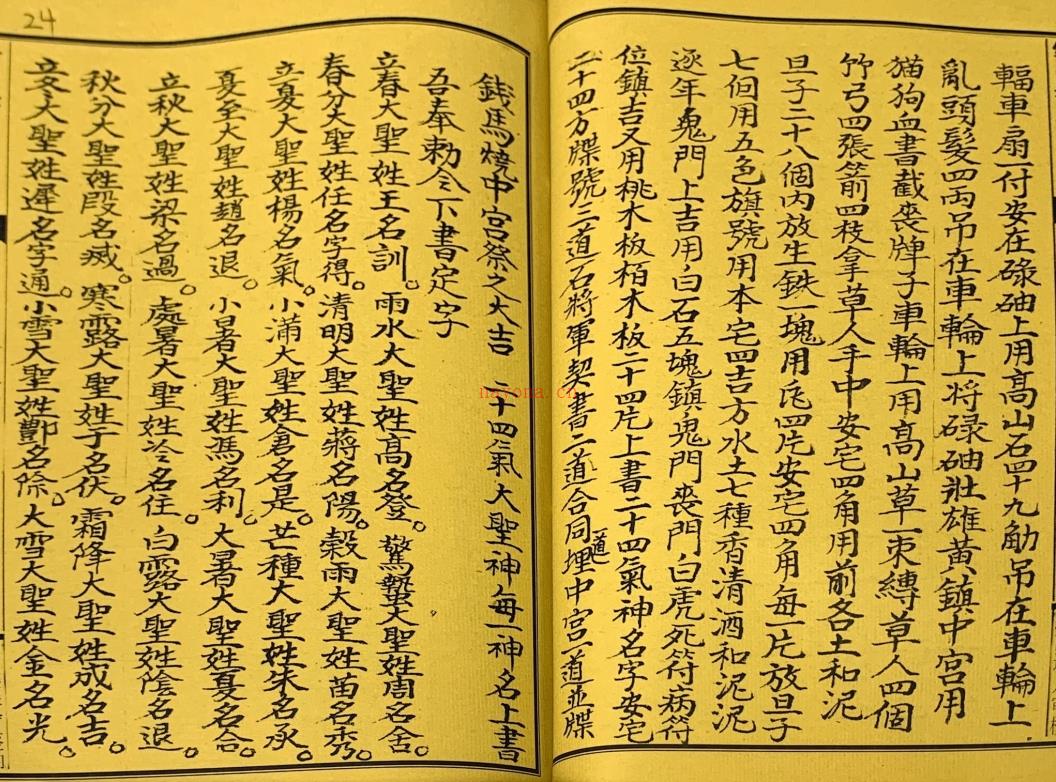 輻車扇一付安在碌砷上用高山石四十九觔吊在車輪上
亂頭髮四両吊在車輪上将碌砷壯雄黃鎮中宮用
猫狗血書截喪牌子車輪上用高山草一束縛草人四個
竹弓四張箭四枝拿草人手中安宅四角用前各土和泥
旦子二十八個内放生鉄一塊用瓦四片安宅四角每一片放旦子
七個用五色旗號用本宅四吉方水土七種香清酒和泥泥
逐年鬼門上吉用白石五塊鎮鬼門喪門白虎死符病符
位鎮吉又用桃木板栢木板二十四片上書二十四氣神名字安宅
二十四方牒號二道石將軍契書二道合同道埋中宮一道並牒
錢馬燒中宮祭之大吉 二十四氣大聖神每一神名上書
吾奉勅令下書定字
立春大聖姓王名訓。雨水大聖姓高名登。驚蟄大聖姓周名舍。
春分大聖姓任名字得。清明大聖姓蔣名陽。穀雨大聖姓苗名秀。
立夏大聖姓楊名氣。小滿大聖姓倉名是。芒種大聖姓朱名永。
夏至大聖姓趙名退。小暑大聖姓馮名利。大暑大聖姓夏名合。
立秋大聖姓梁名過。處暑大聖姓冷名住。白露大聖姓陰名退。
秋分大聖姓段名滅。寒露大聖姓于名伏。霜降大聖姓成名吉。
立冬大聖姓遲名字通。小雪大聖姓酆名除。大雪大聖姓金名光。
24
nayona.cn